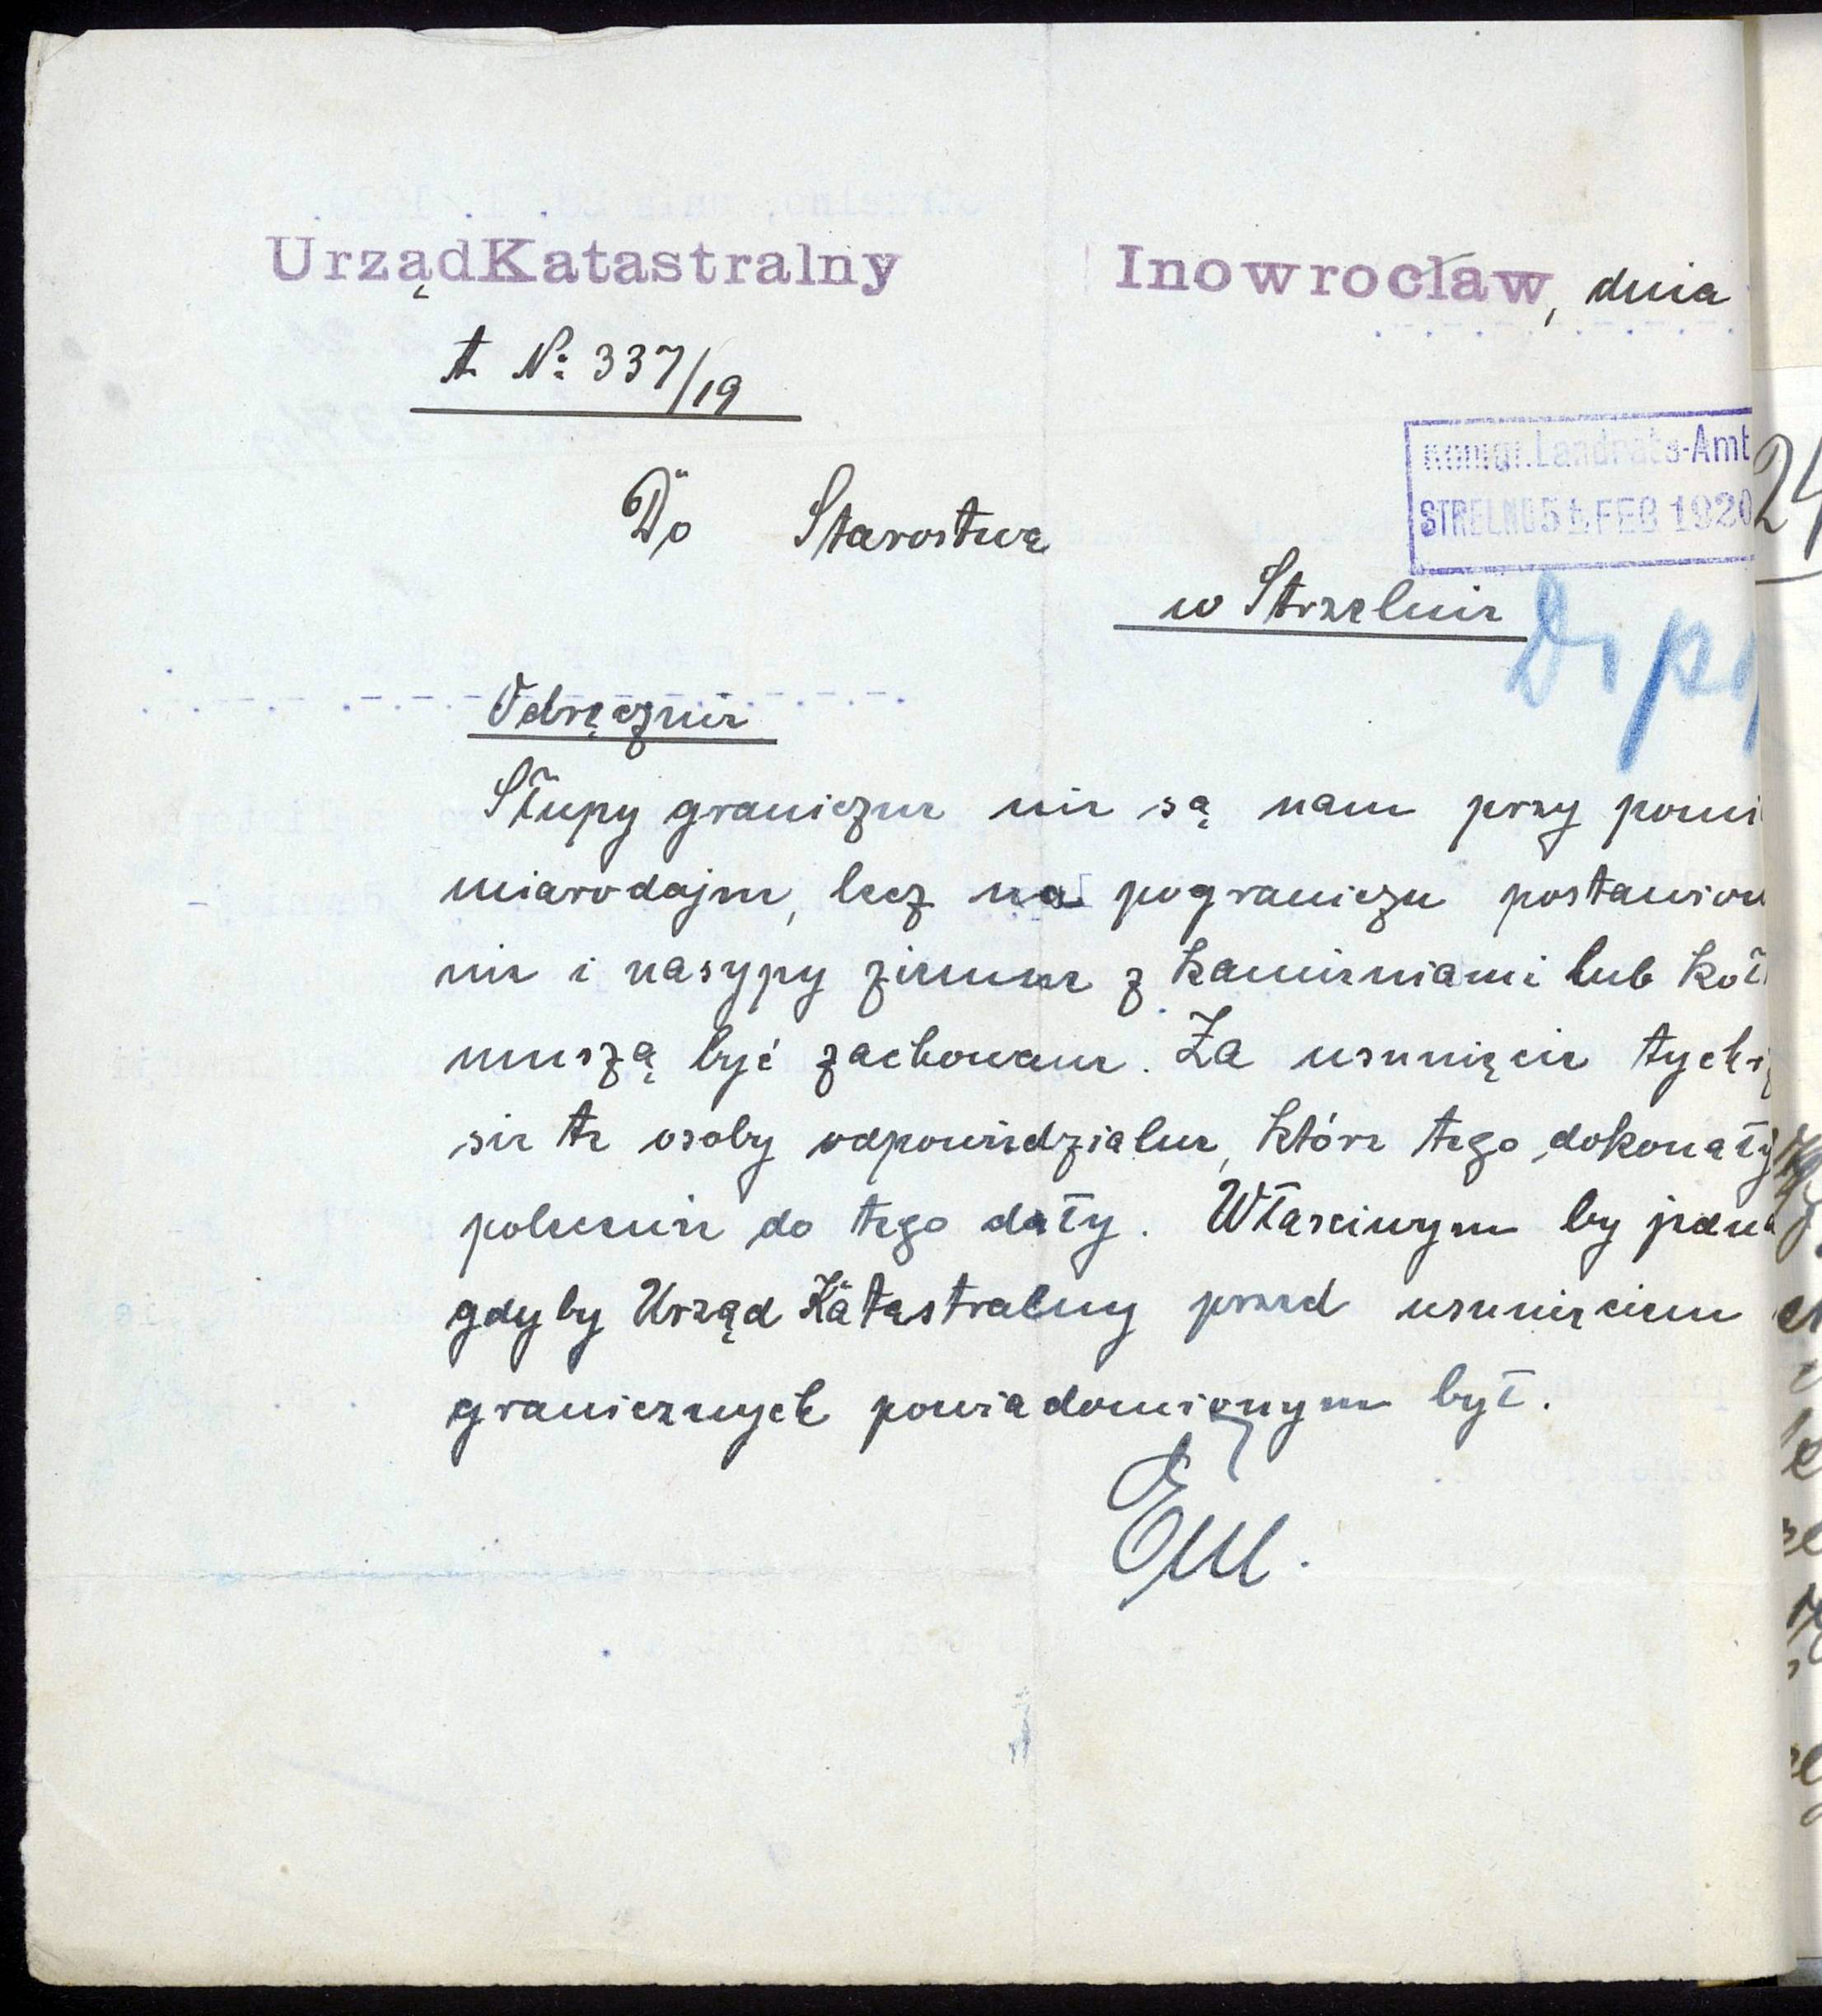 Urząd Katastralny
Inowrocław, dnia
t. No: 337/19
Königl. Landrats-Amt
STRELNO 5 FEB 1920
24
Do Starostwa
w Strzelnie
Odręcznie
Słupy graniczne nie są nam przy pomi
miarodajne, lecz na pograniczu postawion
nie i nasypy ziemne z kamieniami lub koł
muszą być zachowane. Za usunięcie tychż
sie te osoby odpowiedzialne, które tego dokonały
polecenie do tego dały. Właściwym by jedna
gdyby Urząd Katastralny przed usunięciem
granicznych powiadomionym był.